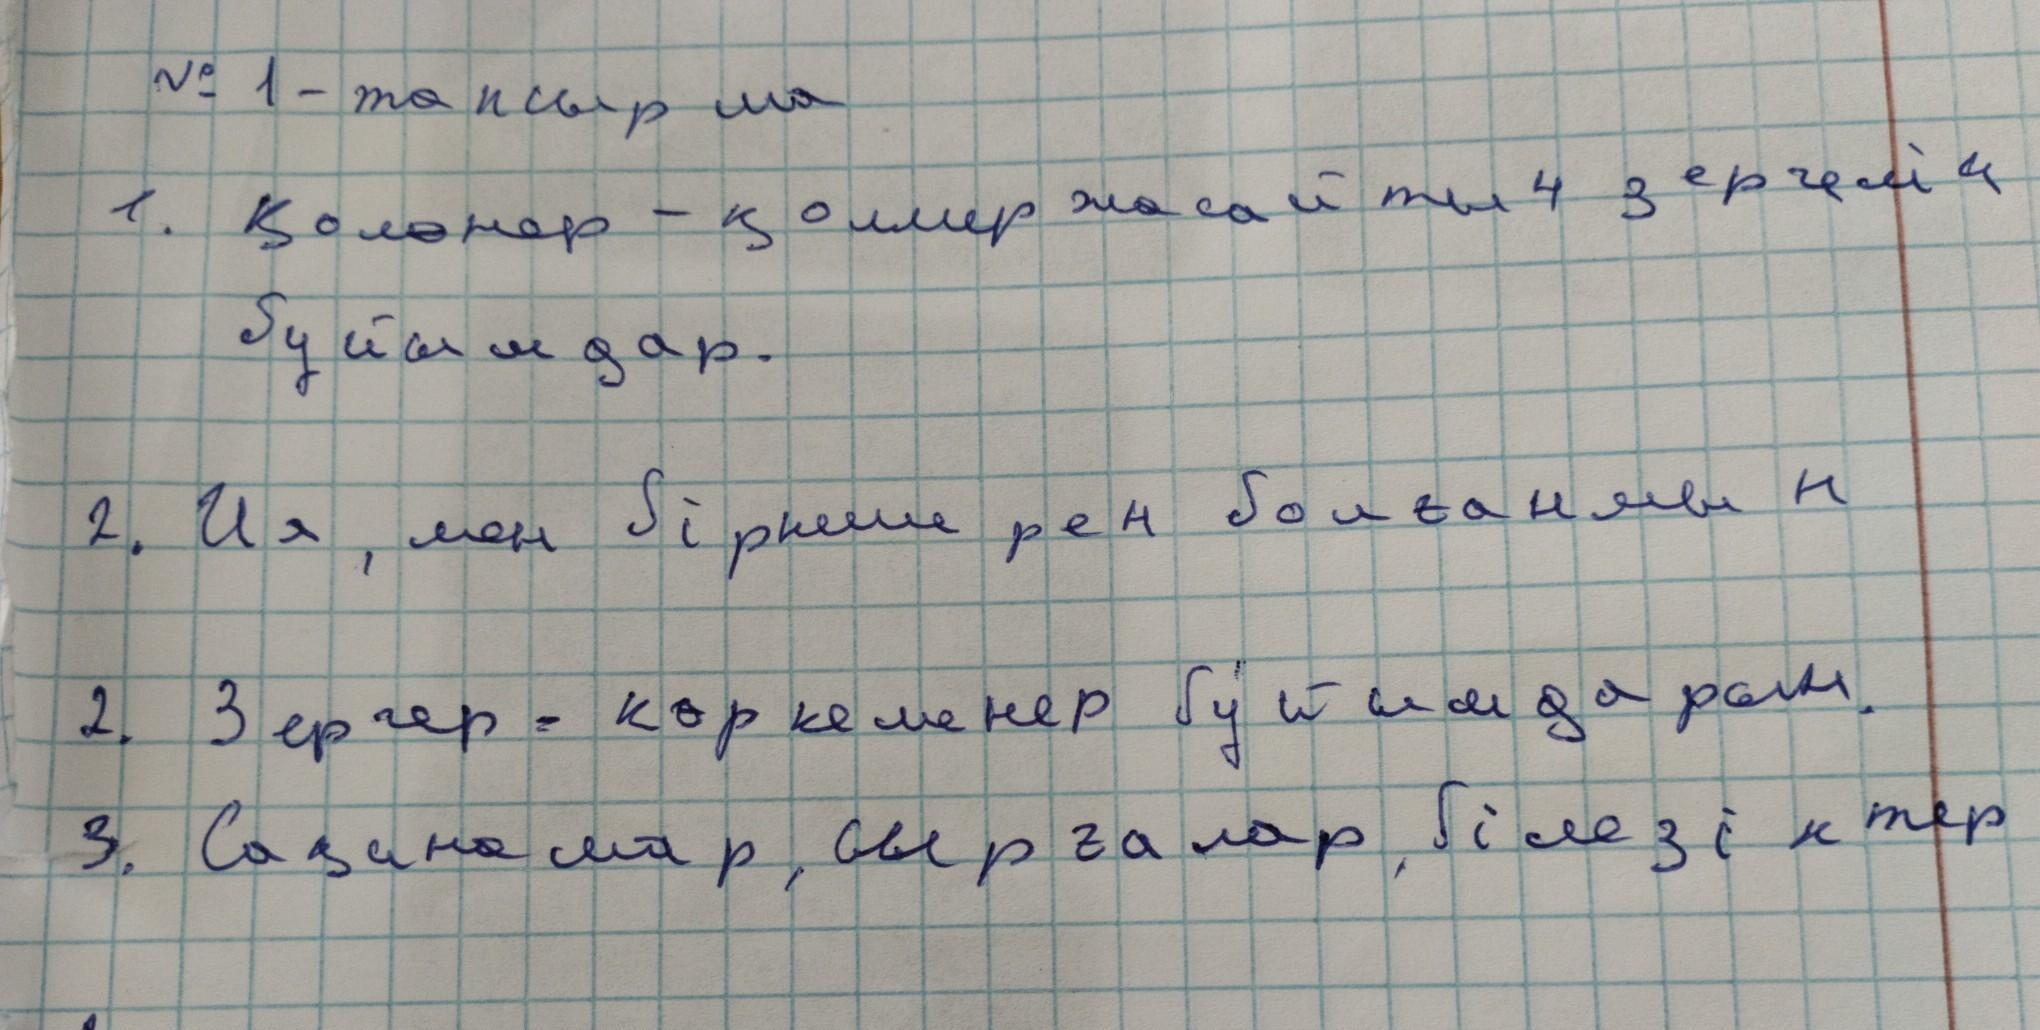 № 1-тапсырма
1. Қолөнер - қолмер жасайтын зергелік
бұйымдар.
2. Ия, мен бірнеше рен болғанмын
2. Зергер - көркеменер бұйымдарын.
3. Сақиналар, сырғалар, білезіктер